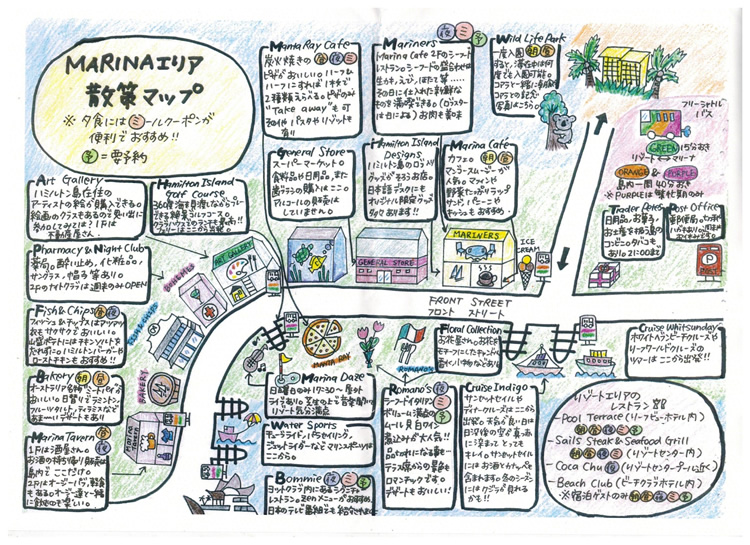 MARINAエリア
散策マップ
※夕食にはミールクーポンが
便利でおすすめ!!
予=要予約
Manta Ray Cafe 昼夜ミ
炭火焼きの
ピザがおいしい。ハーフ&
ハーフにすれば1枚で
2種類えらべる。ピザのみ
"Take away"も可
その他パスタやリゾットも
有り
Mariners 夜ミ予
Marina Cafe 2Fのシーフード
レストラン。シーフードの盛合わせは
生カキ、えび、ほたて等……
その日に仕入れた新鮮な
ものを満喫できる(ロブスター
は日による)お肉も美味
Wild Life Park
一度入園 朝昼
すると、滞在中は何
度でも入園可能。
コアラと一緒に朝食や
コアラとの記念
写真はこちら!
フリーシャトル
バス
GREEN 15分おき
リゾート↔マリーナ
ORANGE & PURPLE
島内一周 40分おき
※PURPLEは繁忙期のみ
General Store
スーパーマーケット。
食料品や日用品、また
歯ブラシの購入はここ。
アルコールの販売は
していません。
Hamilton Island
Designs
ハミルトン島のロゴ入り
グッズがそろうお店。
日本語デスクにも
オリジナル限定グッズ
有ります!!
Marina Cafe
カフェ 朝昼
マンゴスムージーが
人気。マフィンや
野菜たっぷりラップ
サンド、パニーニや
キッシュもおすすめ
Art Gallery
ハミルトン島在住の
アーティストの絵が購入できる。
絵画のクラスもあるので思い出に
参加してみては?1Fは
不動産屋さん。
Hamilton Island
Golf Course
Pharmacy & Night Club
薬局。酔い止め、化粧品、
サングラス、帽子等あり。
2Fのナイトクラブは週末のみOPEN
Trader Petes
日用品、お菓子、
お土産を扱う島の
コンビニ。タバコも
あり。21:00まで
Post Office
郵便局。
POST
BOHEMES
ART GALLERY
GENERAL STORE
MARINERS
ICE
CREAM
FRONT STREET
フロント ストリート
Fish & Chips 昼夜
フィッシュ&チップスはアツアツ
サクサクでおいしい。
ローストチキンもおすすめ!!
FISH&CHIPS
Bakery 朝昼
オーストラリア名物ミートパイが
おいしい。日替りでラミントン、
フルーツタルト、ティラミスなどで
デザートもあり
BAKERY
Marina Tavern 昼夜ミ
1Fは酒屋さん。
お酒の持ち帰り販売は
島内でここだけ。
MANTA RAY
ROMANO'S
Marina Daze
日曜日のみ17:30〜屋外
ライブあり。芝生の上で音楽聞いて
リゾート気分満点
Water Sports
チューブライド、パラセイリング、
ジェットスキーなどマリンスポーツは
ここから。
Bommie 夜ミ予
ヨットクラブ内にあるシグニチャー
レストラン。
Romano's 夜ミ予
ラブ・イタリアン
ボリューム満点の
ムール貝白ワイン
煮込みが大人気!!
テラス席からの景色も
ロマンチックです。
デザートもおいしい!
Floral Collection
お花屋さん。お花を
モチーフにしたキャンドル、
香水、小物などあり
Cruise Indigo
サンセットセイルや
デイナークルーズはここから
出発。天気の良い日は
日没後の空が真っ赤に
染まってとっても
キレイ。サンセットセイル
にはお酒とカナッペも
含まれます。冬のシーズン
にはクジラが見れる
かも!!
Cruise Whitsundays
ホワイトヘブンビーチクルーズや
リーフワールドクルーズの
ツアーはここから出発!!
リゾートエリアの
レストラン
-Pool Terrace(リーフビューホテル内)
朝昼夜ミ予
-Sails Steak & Seafood Grill
朝昼夜ミ予(リゾートセンター内)
-Coca Chu 夜(リゾートセンタープール近く)
-Beach Club(ビーチクラブホテル内)
※宿泊ゲストのみ 朝昼夜ミ予